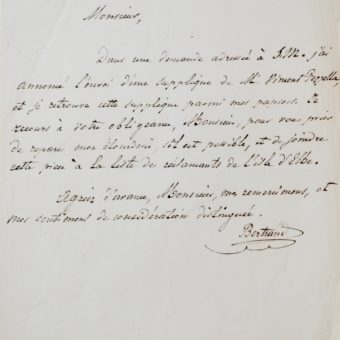 Monsieur,
Dans une demande adressée à S.M. j'ai
annoncé l'envoi d'une supplique de Mr. Vincent
et je retrouve cette supplique parmi mes papiers. Je
recours à votre obligeance, Monsieur, pour vous prier
de réparer mon étourderie, s'il est possible, et de joindre
cette pièce à la liste des réclamants de l'isle d'Elbe.
Agréez d'avance, Monsieur, mes remerciemens, et
mes sentimens de considération distinguée.
Bertrand